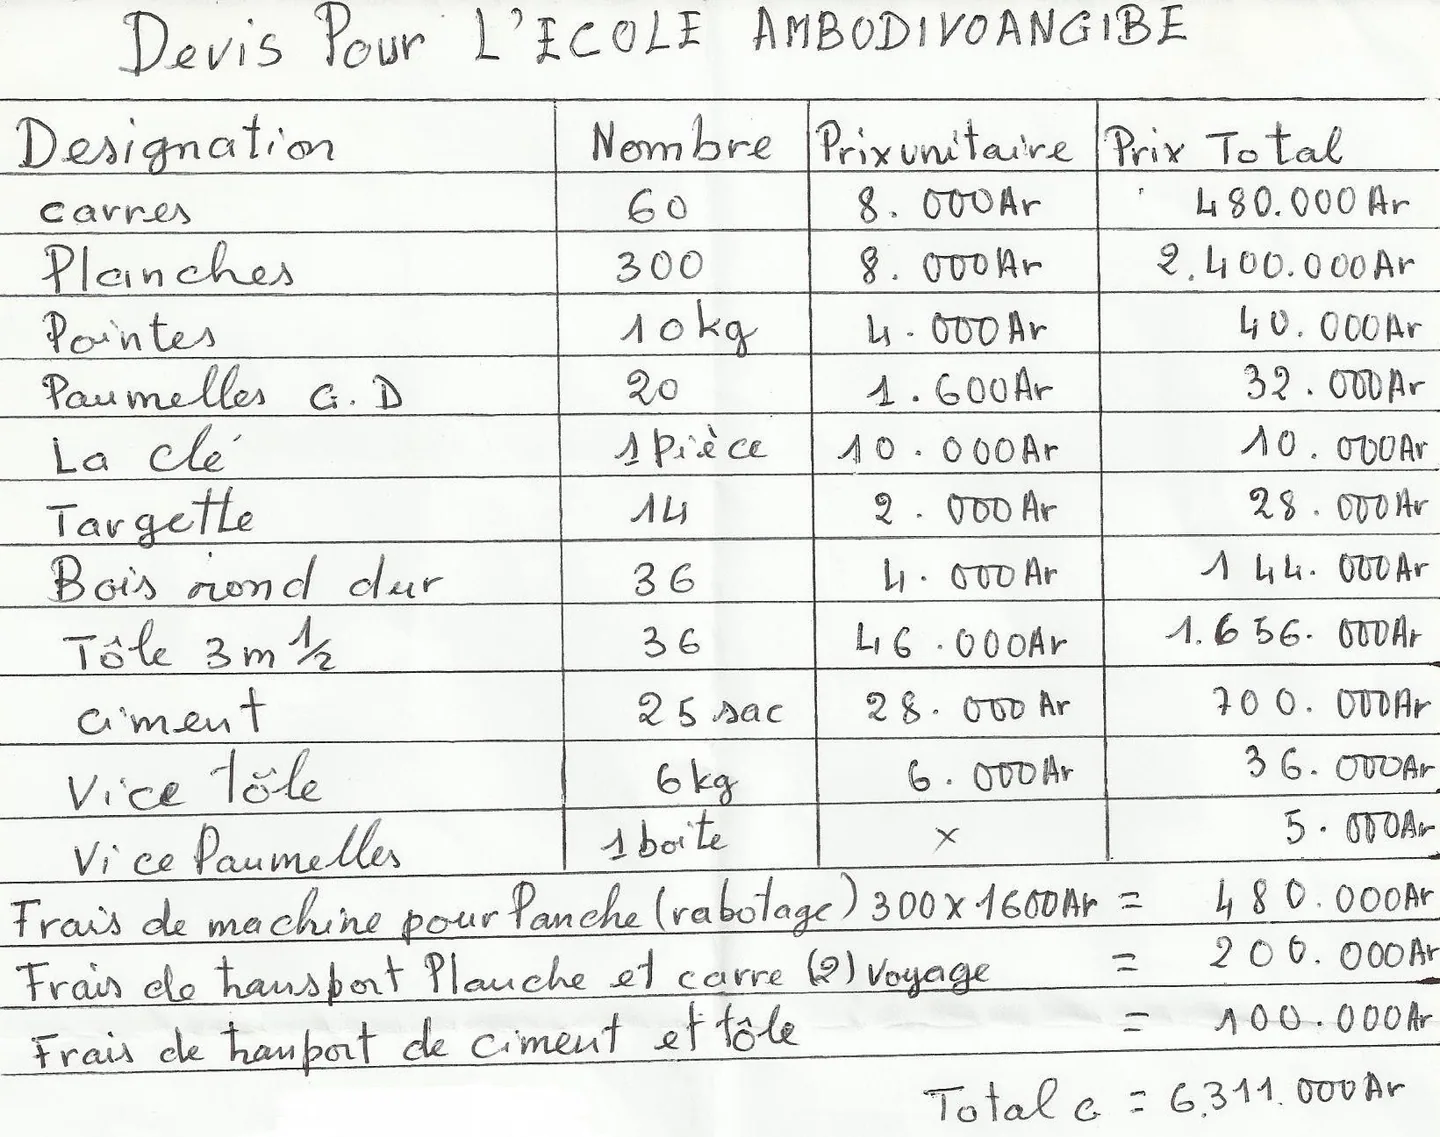 Devis Pour L'ECOLE AMBODIVOANGIBE
Designation Nombre Prix unitaire Prix Total
carres 60 8.000Ar 480.000Ar
Planches 300 8.000Ar 2.400.000Ar
Pointes 10kg 4.000Ar 40.000Ar
Paumelles G.D 20 1.600Ar 32.000Ar
La clé 1 Pièce 10.000Ar 10.000Ar
Targette 14 2.000Ar 28.000Ar
Bois rond dur 36 4.000Ar 144.000Ar
Tôle 3m 1/2 36 46.000Ar 1.656.000Ar
ciment 25 sac 28.000Ar 700.000Ar
Vice Tôle 6kg 6.000Ar 36.000Ar
Vice Paumelles 1 boite x 5.000Ar
Frais de machine pour Panche (rabotage) 300x1600Ar = 480.000Ar
Frais de transport Planche et carre (2) voyage = 200.000Ar
Frais de tranport de ciment et tôle = 100.000Ar
Total G = 6.311.000Ar